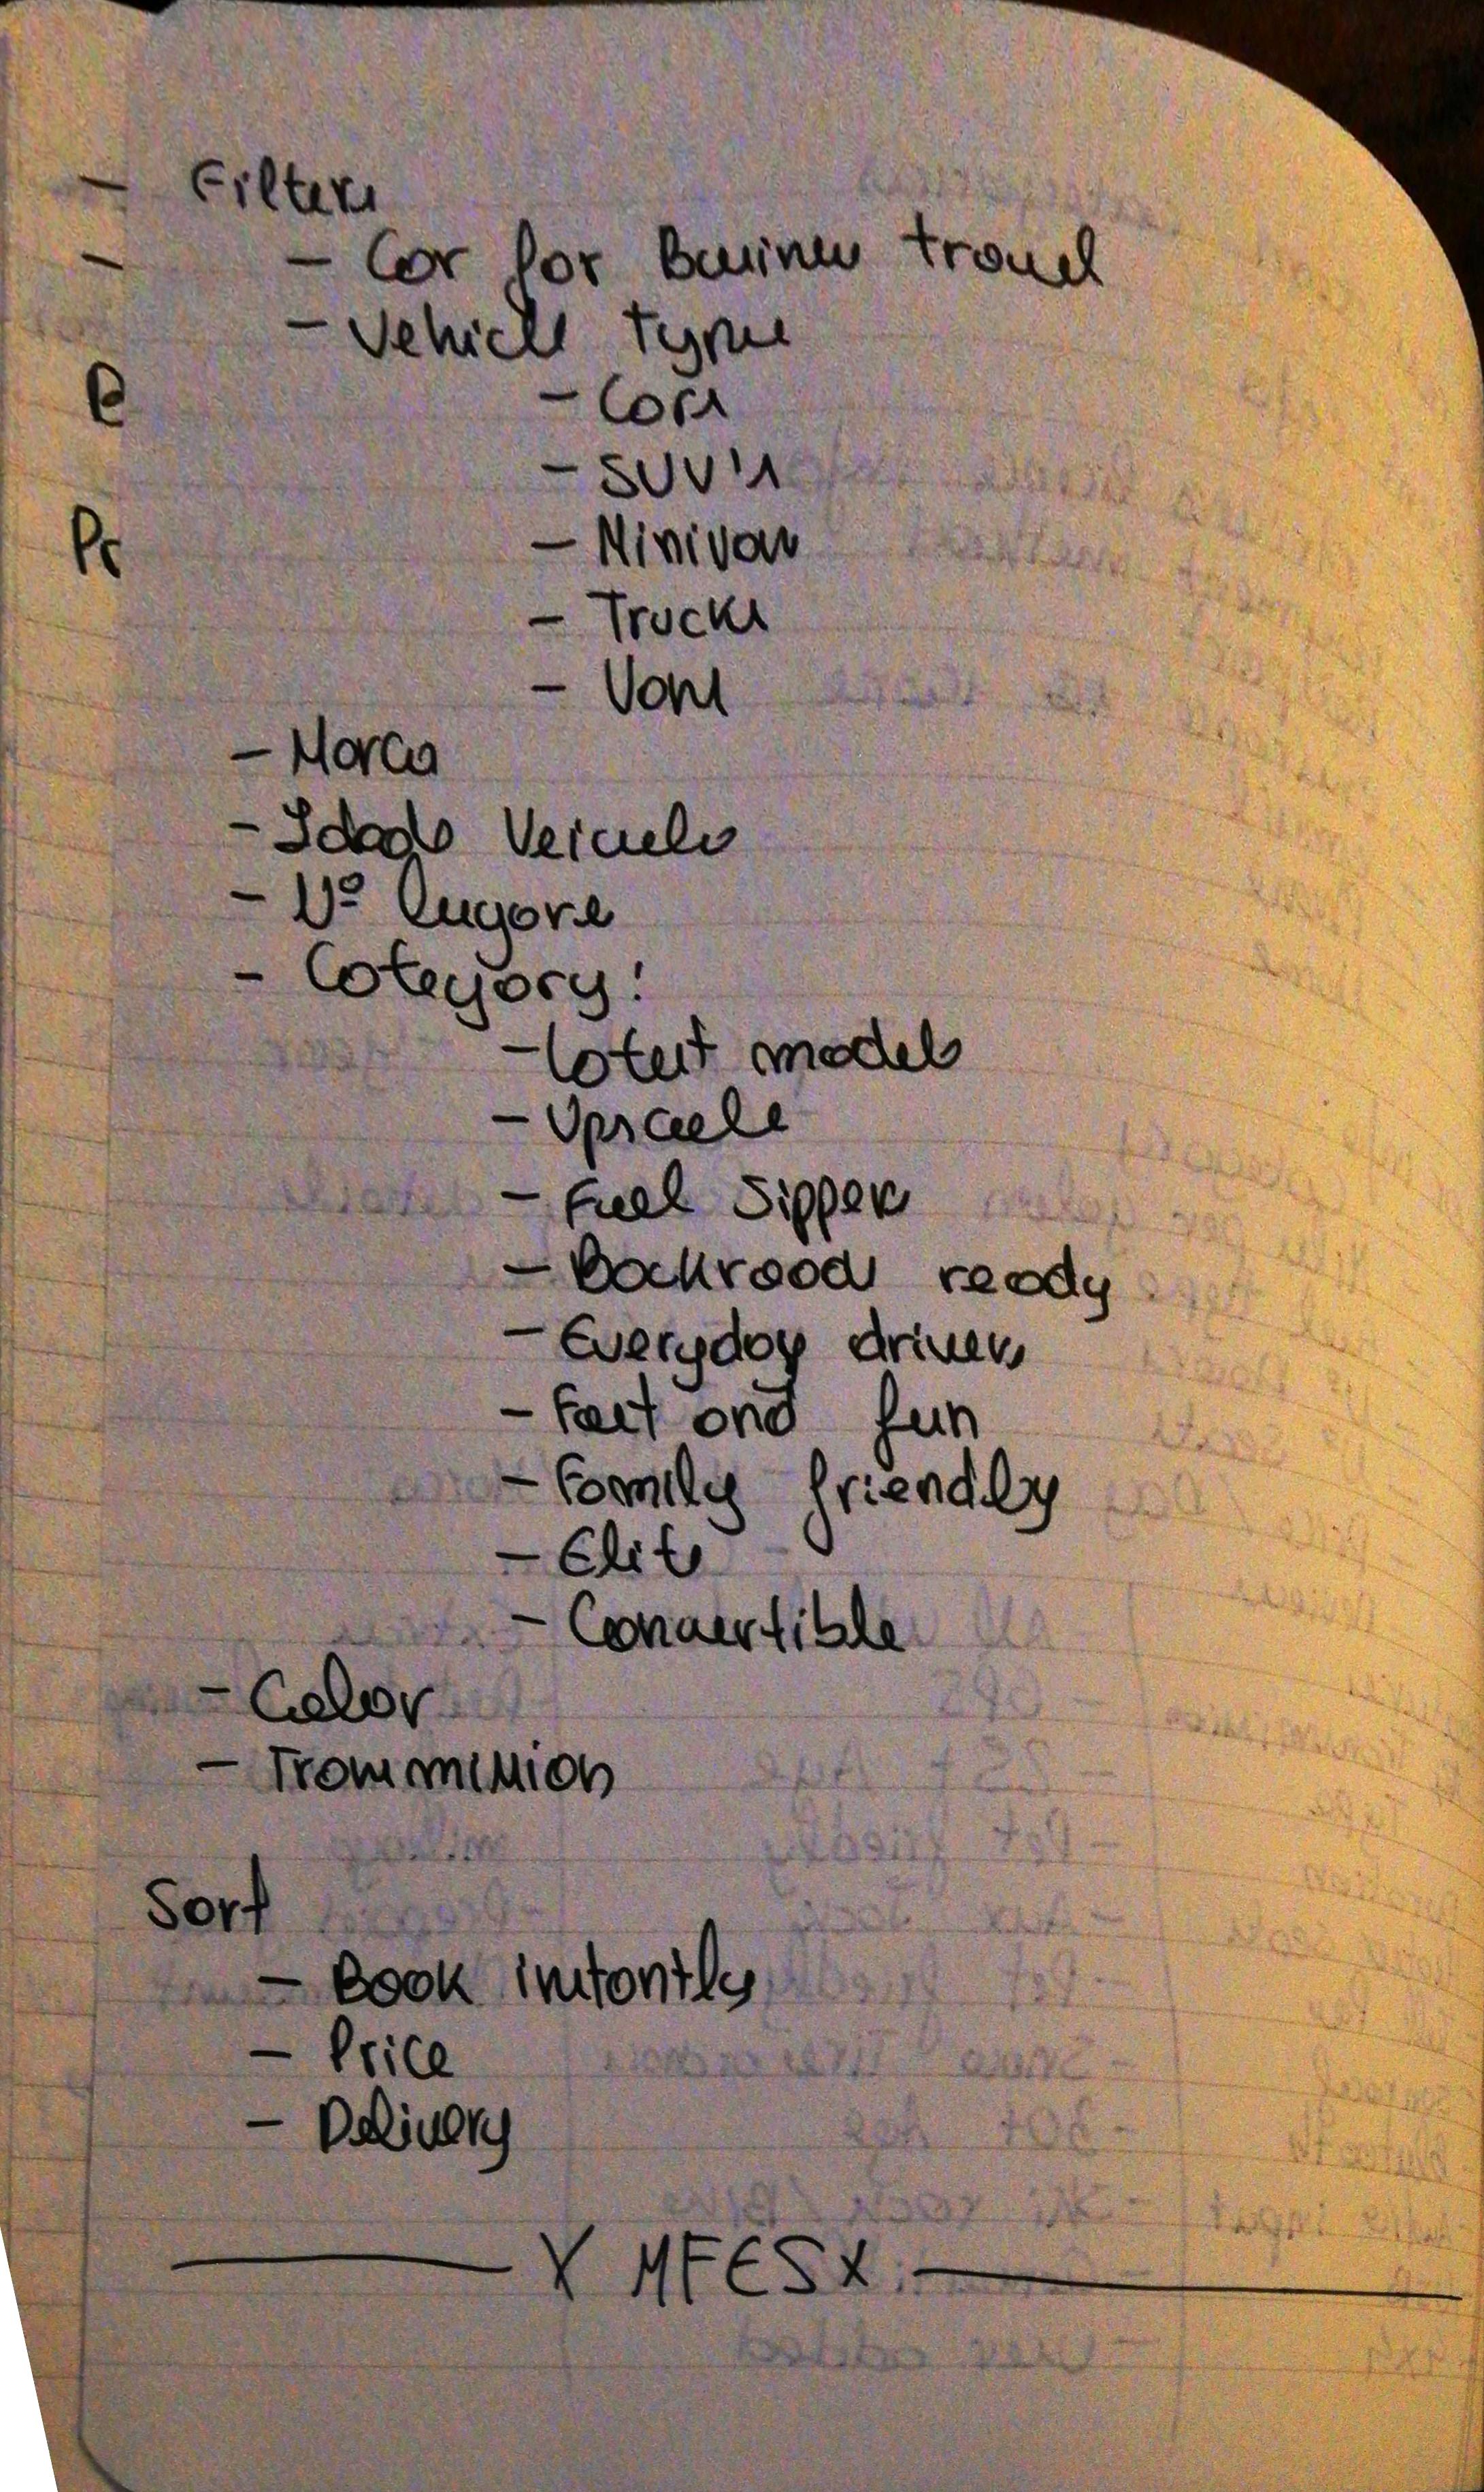 - Filters
- - Car for Business travel
- Vehicle types
- Cars
- SUV's
- Minivans
- Trucks
- Vans
- Marca
- Idade Veiculo
- Nº lugares
- Category:
- Latest models
- Upscale
- Fuel Sippers
- Backroads ready
- Everyday drivers
- Fast and fun
- Family friendly
- Elite
- Convertible
- Color
- Transmission
Sort
- Book instantly
- Price
- Delivery
X MFES X